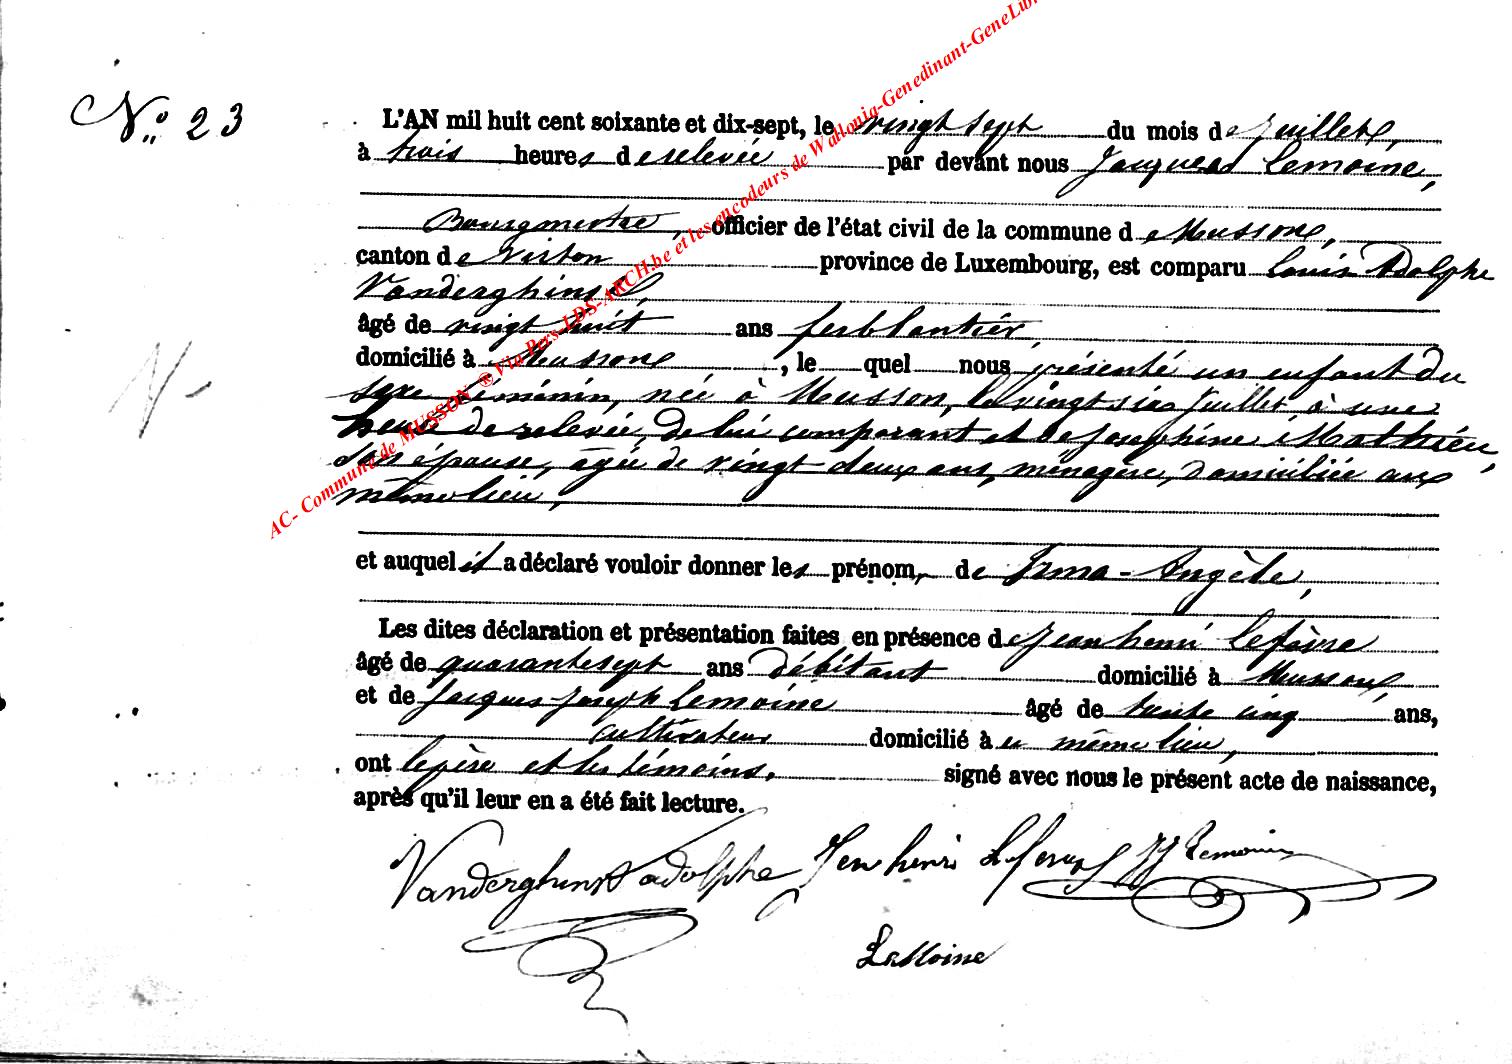 N.° 23
L'AN mil huit cent soixante et dix-sept, le vingt sept du mois de Juillet,
à trois heures de relevée par devant nous Jacques Lemoine,
Bourgmestre, officier de l'état civil de la commune de Musson,
canton de Virton province de Luxembourg, est comparu Louis Adolphe
Vanderghinst,
âgé de vingt huit ans ferblantier,
domicilié à Musson, le quel nous présenté un enfant du
sexe féminin, née à Musson, le vingt six Juillet, à une
heure de relevée, de lui comparant et de Josephine Mathieu,
son épouse, âgée de vingt deux ans, ménagère, domiciliée aux
même lieu,
et auquel il a déclaré vouloir donner les prénom, de Irma-Angèle,
Les dites déclaration et présentation faites en présence de Jean henri Lefèvre
âgé de quarante sept ans débitant domicilié à Musson,
et de Jacques Joseph Lemoine âgé de trente cinq ans,
cultivateur domicilié à u même lieu,
ont le père et les témoins, signé avec nous le présent acte de naissance,
après qu'il leur en a été fait lecture.
Vanderghinst adolphe Jen henri JJ Lemoine
LeMoine
AC- Commune de MUSSON ® Via Pers-LDS-ARCH.be et les encodeurs de Wallonia-Genedinant-GeneLib